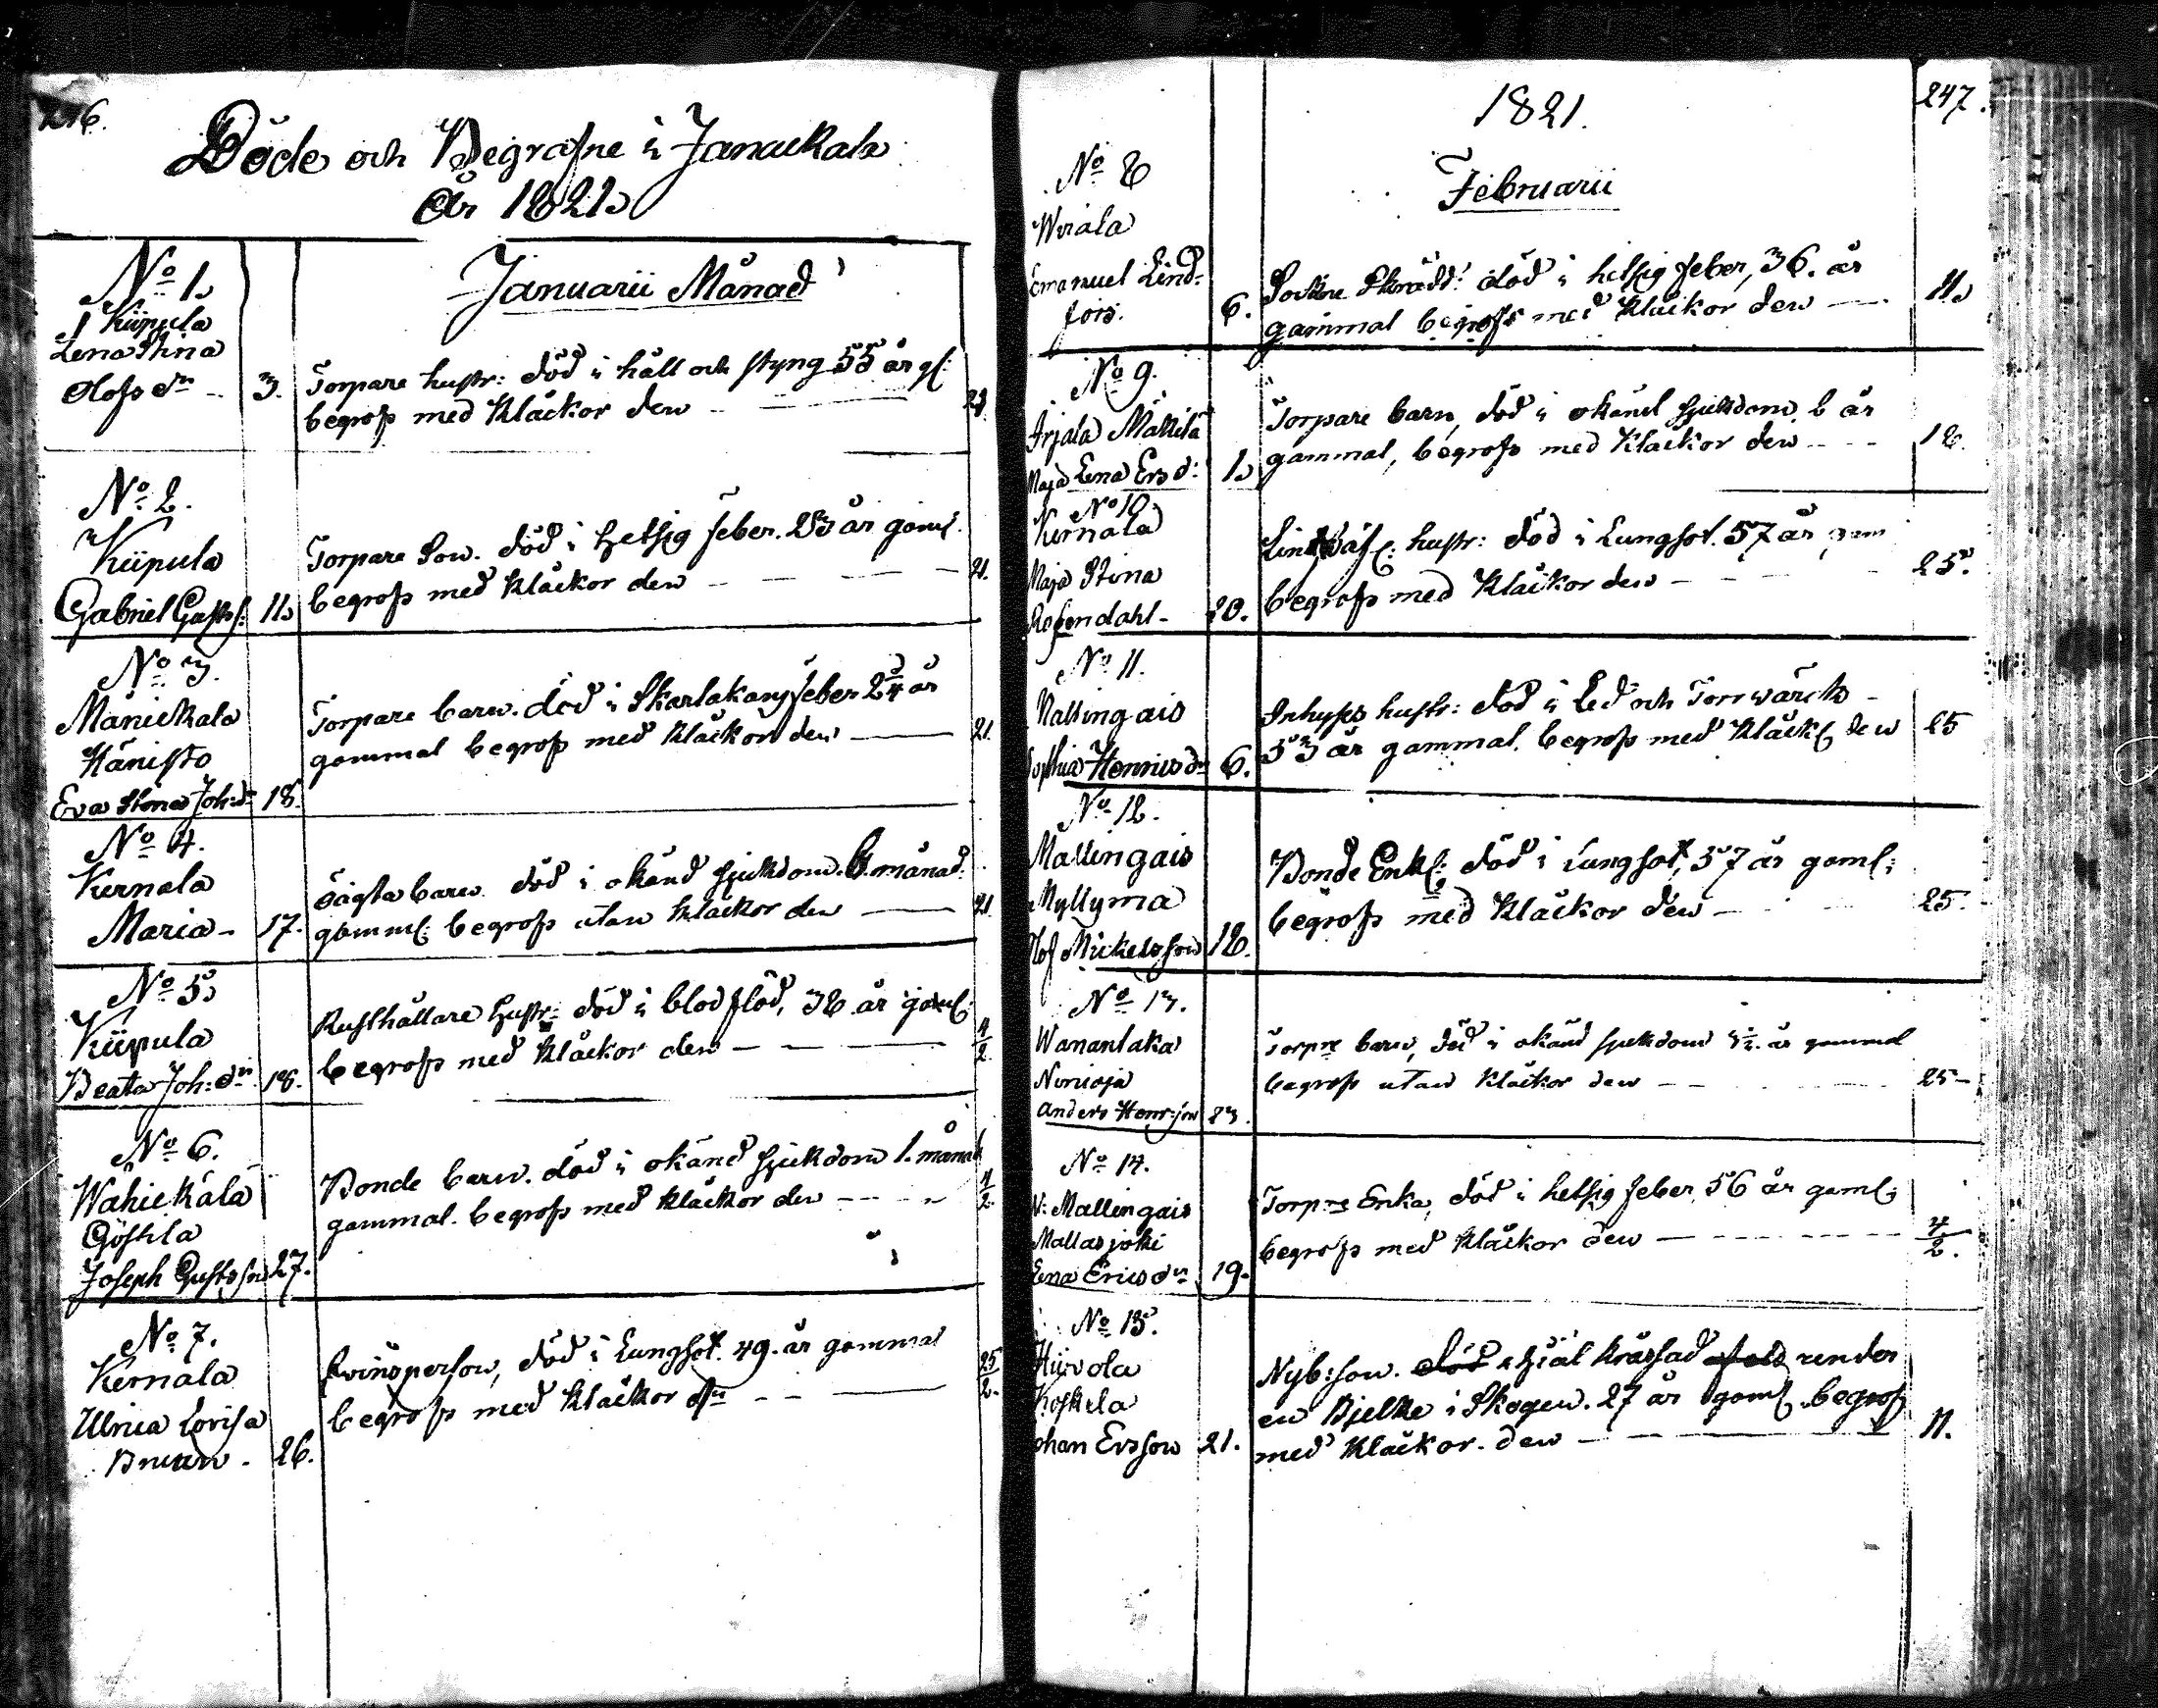 246.
Döde och Begrafne i Janackala
År 1821.
Januarii Månad
No 1.
Kiipula
Lena Stina
Olofs dr 3. Torpare hustr: död i håll och styng 55 år gl:
begrofs med Kläckor den
No 2.
Kiipula
Gabriel Gusts: 11. Torpare Son. död i hetsig feber. 23 år gaml.
begrofs med Kläckor den 21.
No 3.
Maniekala
Hänisto
Eva Stina Joh:dr 18. Torpare barn. död i Skarlakansfeber 2 3/4 år
gammal begrofs med Kläckor den 21.
No 4.
Kernala
Maria 17. barn död i okänd sjukdom månad:
gamml: begrofs utan Kläckor den 21
No 5.
Kiipula
Beata Joh:dr 18. Rusthållare hustr: död i blodflöd, 38 år gaml:
begrofs med Kläckor den 4/2
No 6.
Wähiekälä
Göstila
Joseph Gustsson 27. Bonde barn. död i okänd sjukdom 1. månad
gammal. begrofs med Kläckor den 4/2.
No 7.
Kernala
Ulrica Lovisa
Bruun. 26. Qvinsperson, död i Lungsot. 49. år gammal
begrofs med Kläckor dn 25/2.
247.
1821.
Februarii
No 8
Wirala
Emanuel Lind-
fors. 6. Sockne Skrädd: död i hetsig feber, 36. år
gammal begrofs med Kläckor den 11.
No 9.
Arjala Mattila
Maja Lena Ersd: 1. Torpare barn, död i okänd sjukdom, 6 år
gammal, begrofs med Kläckor den 18.
No 10.
Kernala
Maja Stina
Rosendahl 20. hustr: död i Lungsot. 57 år gam
begrofs med Kläckor den 25.
No 11.
Mallingais
Sophia Henricsdr 6. Inhyses hustr: död i Led och Torrwärck
53 år gammal. begrofs med Kläck: den 25
No 12.
Mallingais
Myllymä
Olof Mickelsson 18. Bonde Enkl: död i Lungsot, 57 år gaml:
begrofs med Kläckor den 25.
No 13.
Wanantaka
Anders Henr:son 23. Torpre barn, död i okänd sjukdom år gammal
begrofs utan Kläckor den 25
No 14.
N: Mallingais
Mallasjoki
Lena Ericsdr 19. Torpre Enka, död i hetsig feber, 56 år gaml:
begrofs med Kläckor den 4/2.
No 15.
Hiivola
Koskela
Johan Ersson 21. Nyb:son. död ihjäl krässad under
en Bjelke i Skogen. 27 år gaml. begrofs
med Kläckor. den 11.